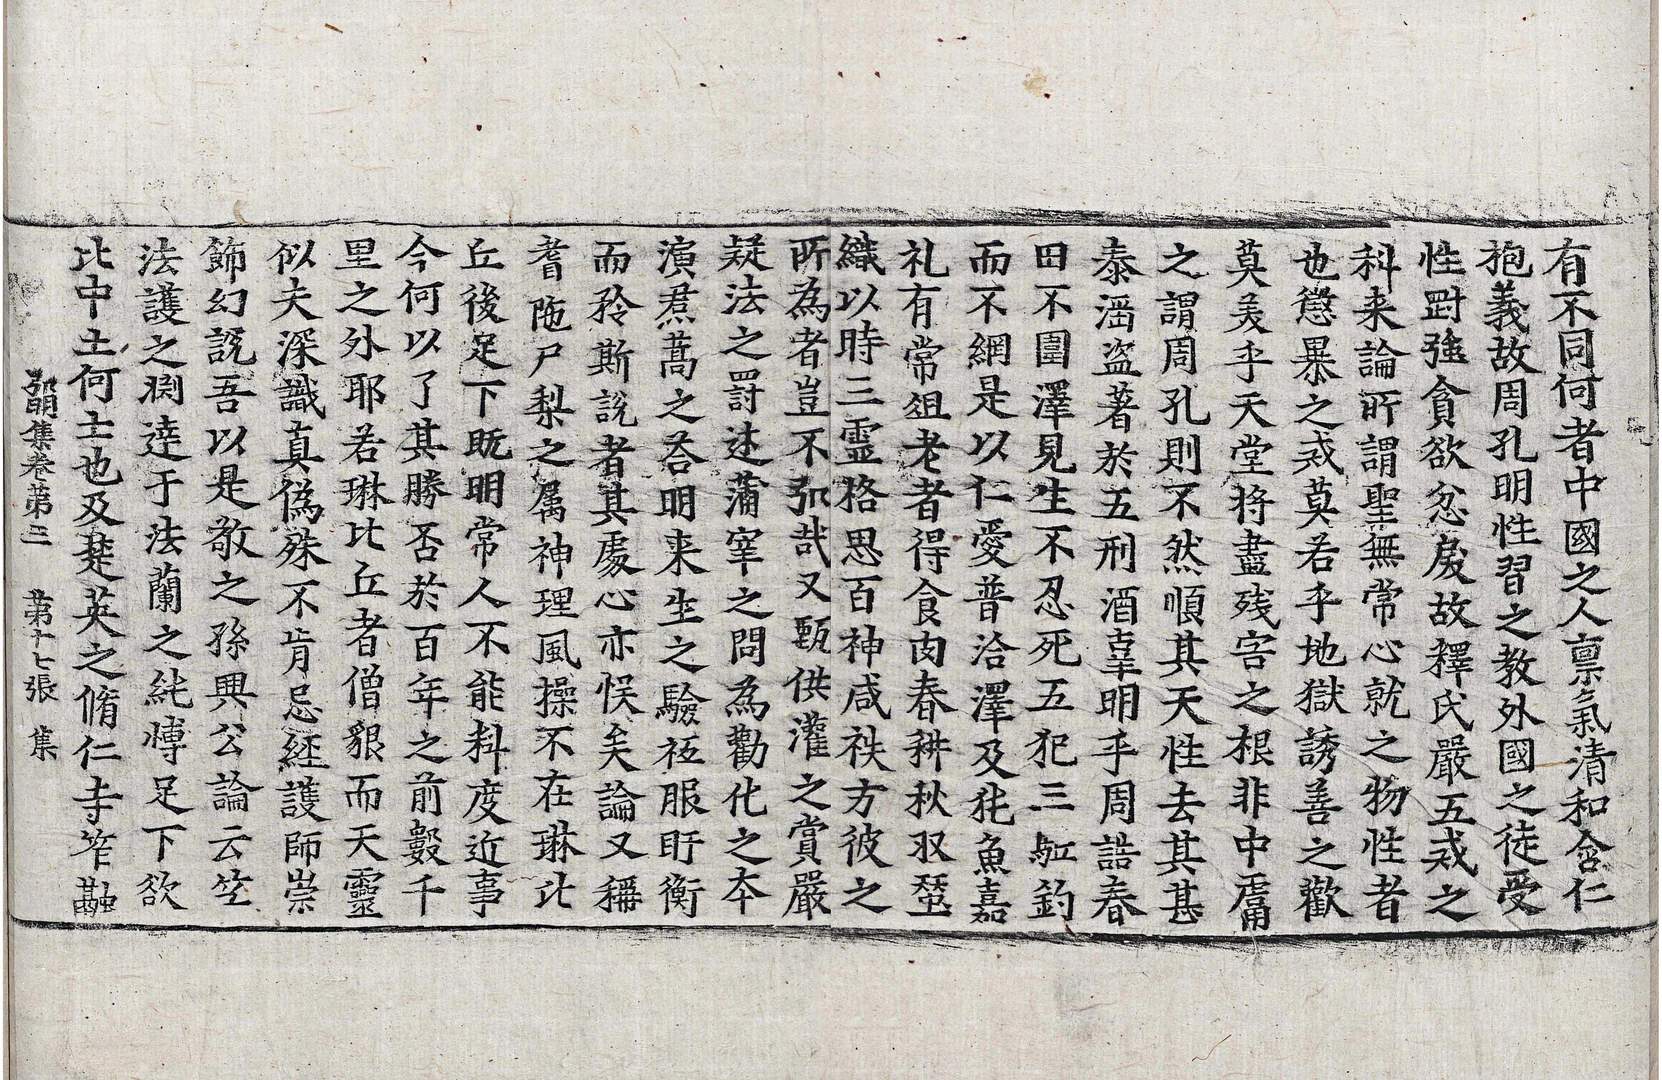 有不同何者中國之人稟氣清和含仁
抱義故周孔明性習之教外國之徒受
性罸強貪欲忿戾故釋氏嚴五戒之
科来論所謂聖無常心就之物性者
也懲暴之戒莫若乎地獄誘善之歡
莫羙乎天堂将盡残害之根非中庸
之謂周孔則不然順其天性去其甚
泰滛盗著於五刑酒辜明乎周誥春
田不圍澤見生不忍死五犯三䮃釣
而不網是以仁愛普洽澤及㹠魚嘉
礼有常俎老者得食肉春耕秋収蝅
織以時三靈格思百神咸袟方彼之
所為者豈不弘哉又甄供灌之賞嚴
疑法之罸述蒲宰之問為勸化之夲
演焄蒿之荅明来生之驗袨服盱衡
而矜斯說者其處心亦悮矣論又稱
耆陁尸梨之属神理風操不在琳比
丘後足下旣明常人不能料度近事
今何以了其勝否於百年之前數千
里之外耶若琳比丘者僧貌而天靈
似夫深識真偽殊不肯忌経護師崇
飾幻說吾以是敬之孫興公論云竺
法護之渕逹于法蘭之純愽足下欲
比中土何士也及楚英之脩仁寺笮融
弘明集卷第三 第十七張 集